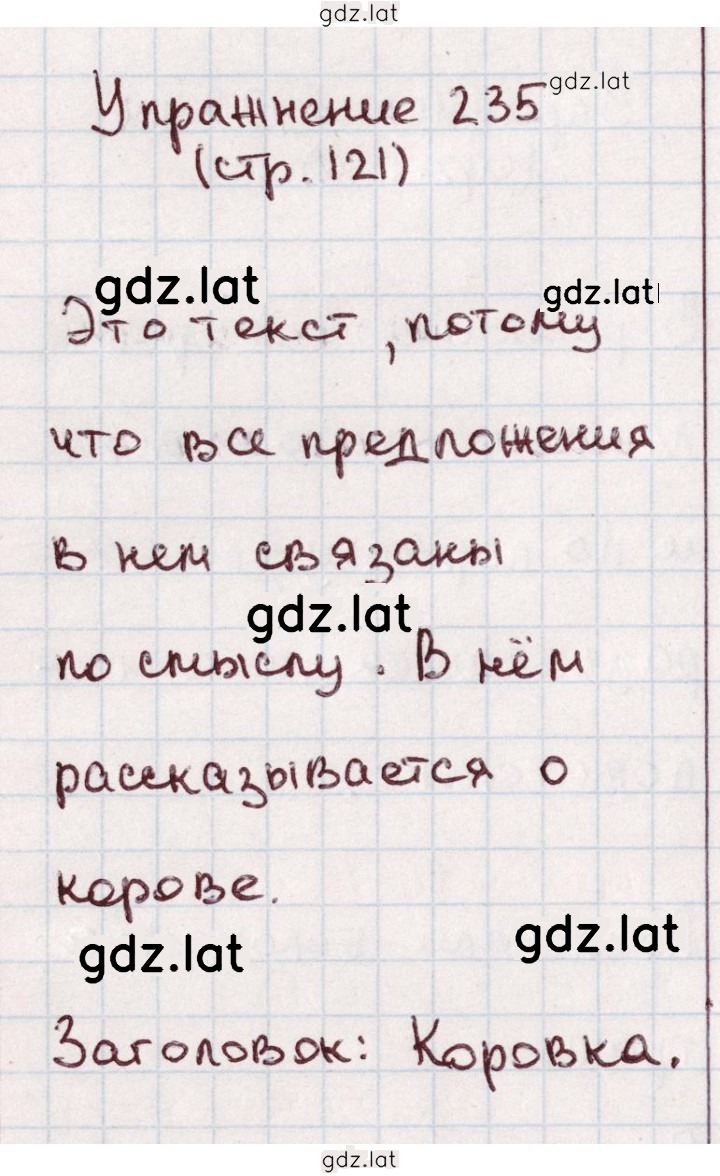 gdz.lat
gdz.lat
Упражнение 235
(стр. 121)
gdz.lat
gdz.lat
Это текст, потому
что все предложения
в нем связаны
gdz.lat
по смыслу. В нём
рассказывается о
корове.
gdz.lat
gdz.lat
Заголовок: Коровка.
gdz.lat